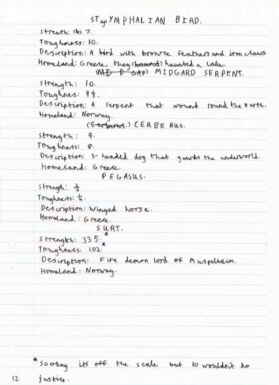 STyYMPHALIAN BIRD.
Strength: 7.
Toughness: 10.
Description: A bird with bronze feathers and iron claws
Homeland: Greece. they haunted a lake.
MIDGARD SERPENT.
Strength: 10.
Toughness: 99.
Description: A serpent that wound round the earth.
Homeland: Norway.
CERBERUS.
Strength: 9.
Toughness: 8.
Description: 3-headed dog that guards the underworld.
Homeland: Greece.
PEGASUS.
Strength: ½
Toughness: ½.
Description: Winged horse.
Homeland: Greece.
SURT.
Strength: 335*
Toughness: 102*
Description: Fire demon lord of Muspelheim.
Homeland: Norway.
*So strong its off the scale but 10 wouldn't do
12 justice.